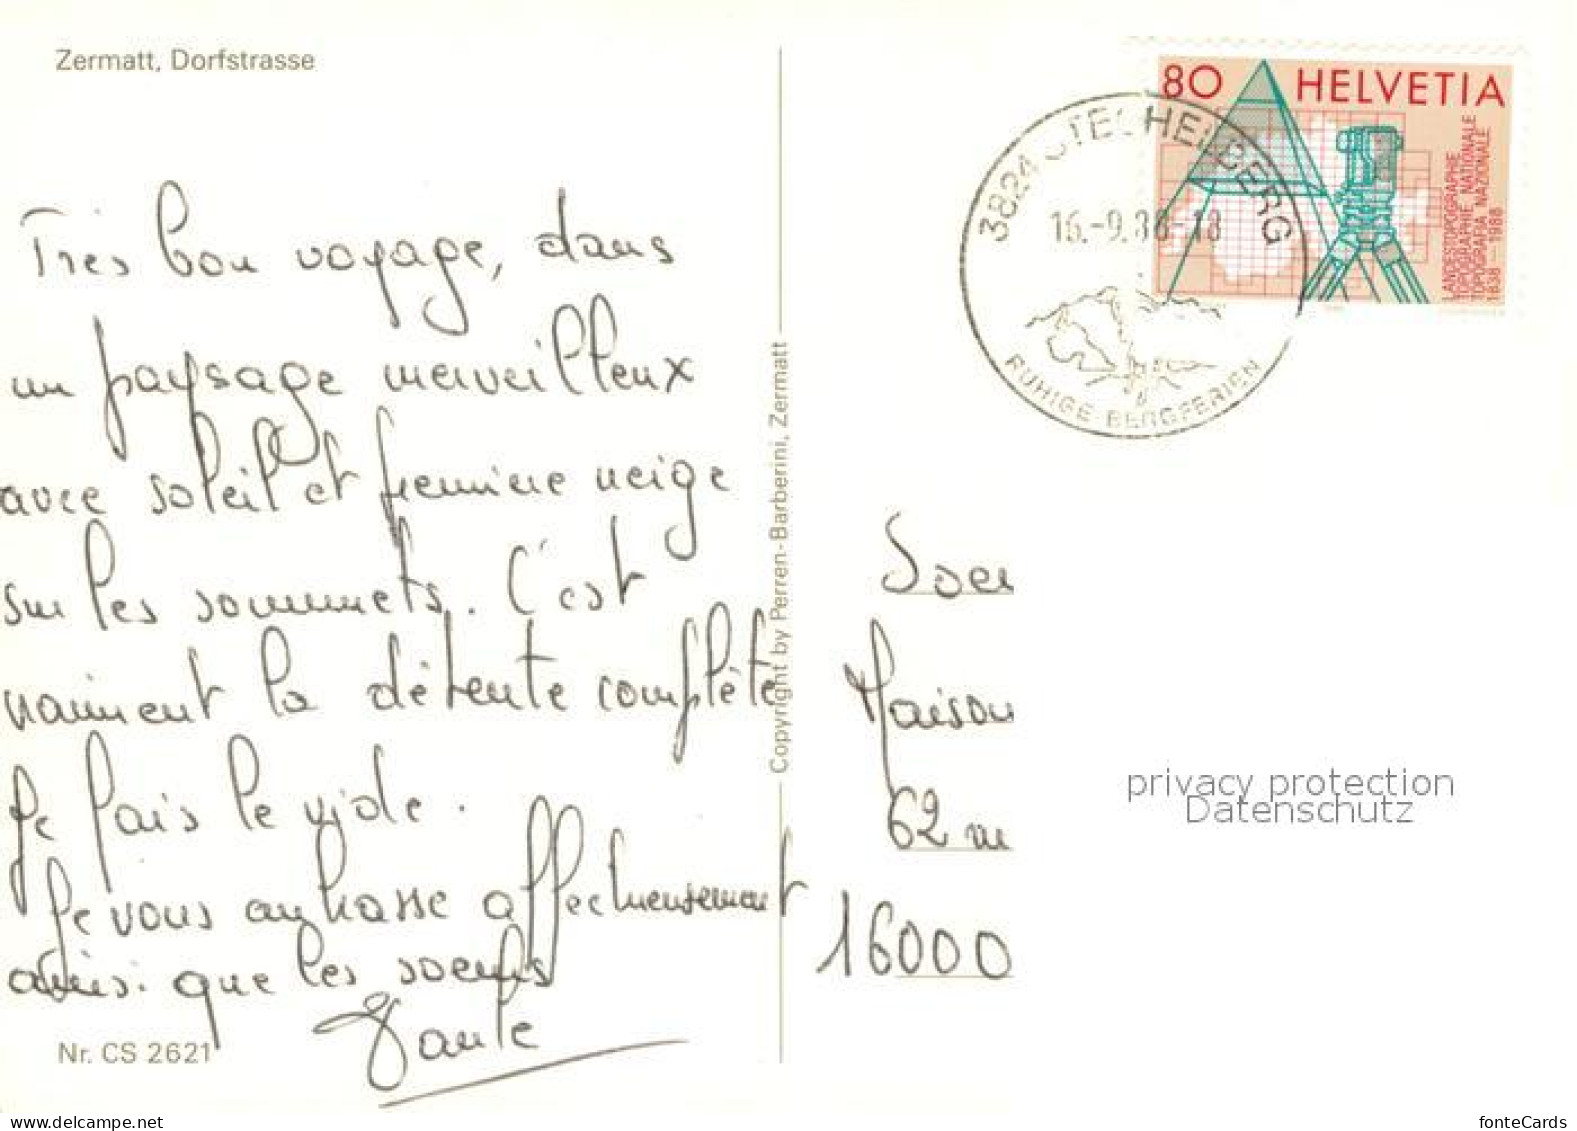 Zermatt, Dorfstrasse
80 HELVETIA
LANDESTOPOGRAPHIE
TOPOGRAPHIE NATIONALE
TOPOGRAFIA NAZIONALE
1838 – 1988
3824 STECHELBERG
16.-9.88-18
RUHIGE BERGFERIEN
Très bon voyage, dans
un paysage merveilleux
avec soleil et première neige
sur les sommets. C'est
vraiment la détente complète
Je fais le vide.
Je vous embrasse affectueusement
ainsi que les soeurs
Copyright by Perren-Barberini, Zermatt
Soeu
Maison
62 m
16000
Nr. CS 2621
privacy protection
Datenschutz
www.delcampe.net
fonteCards